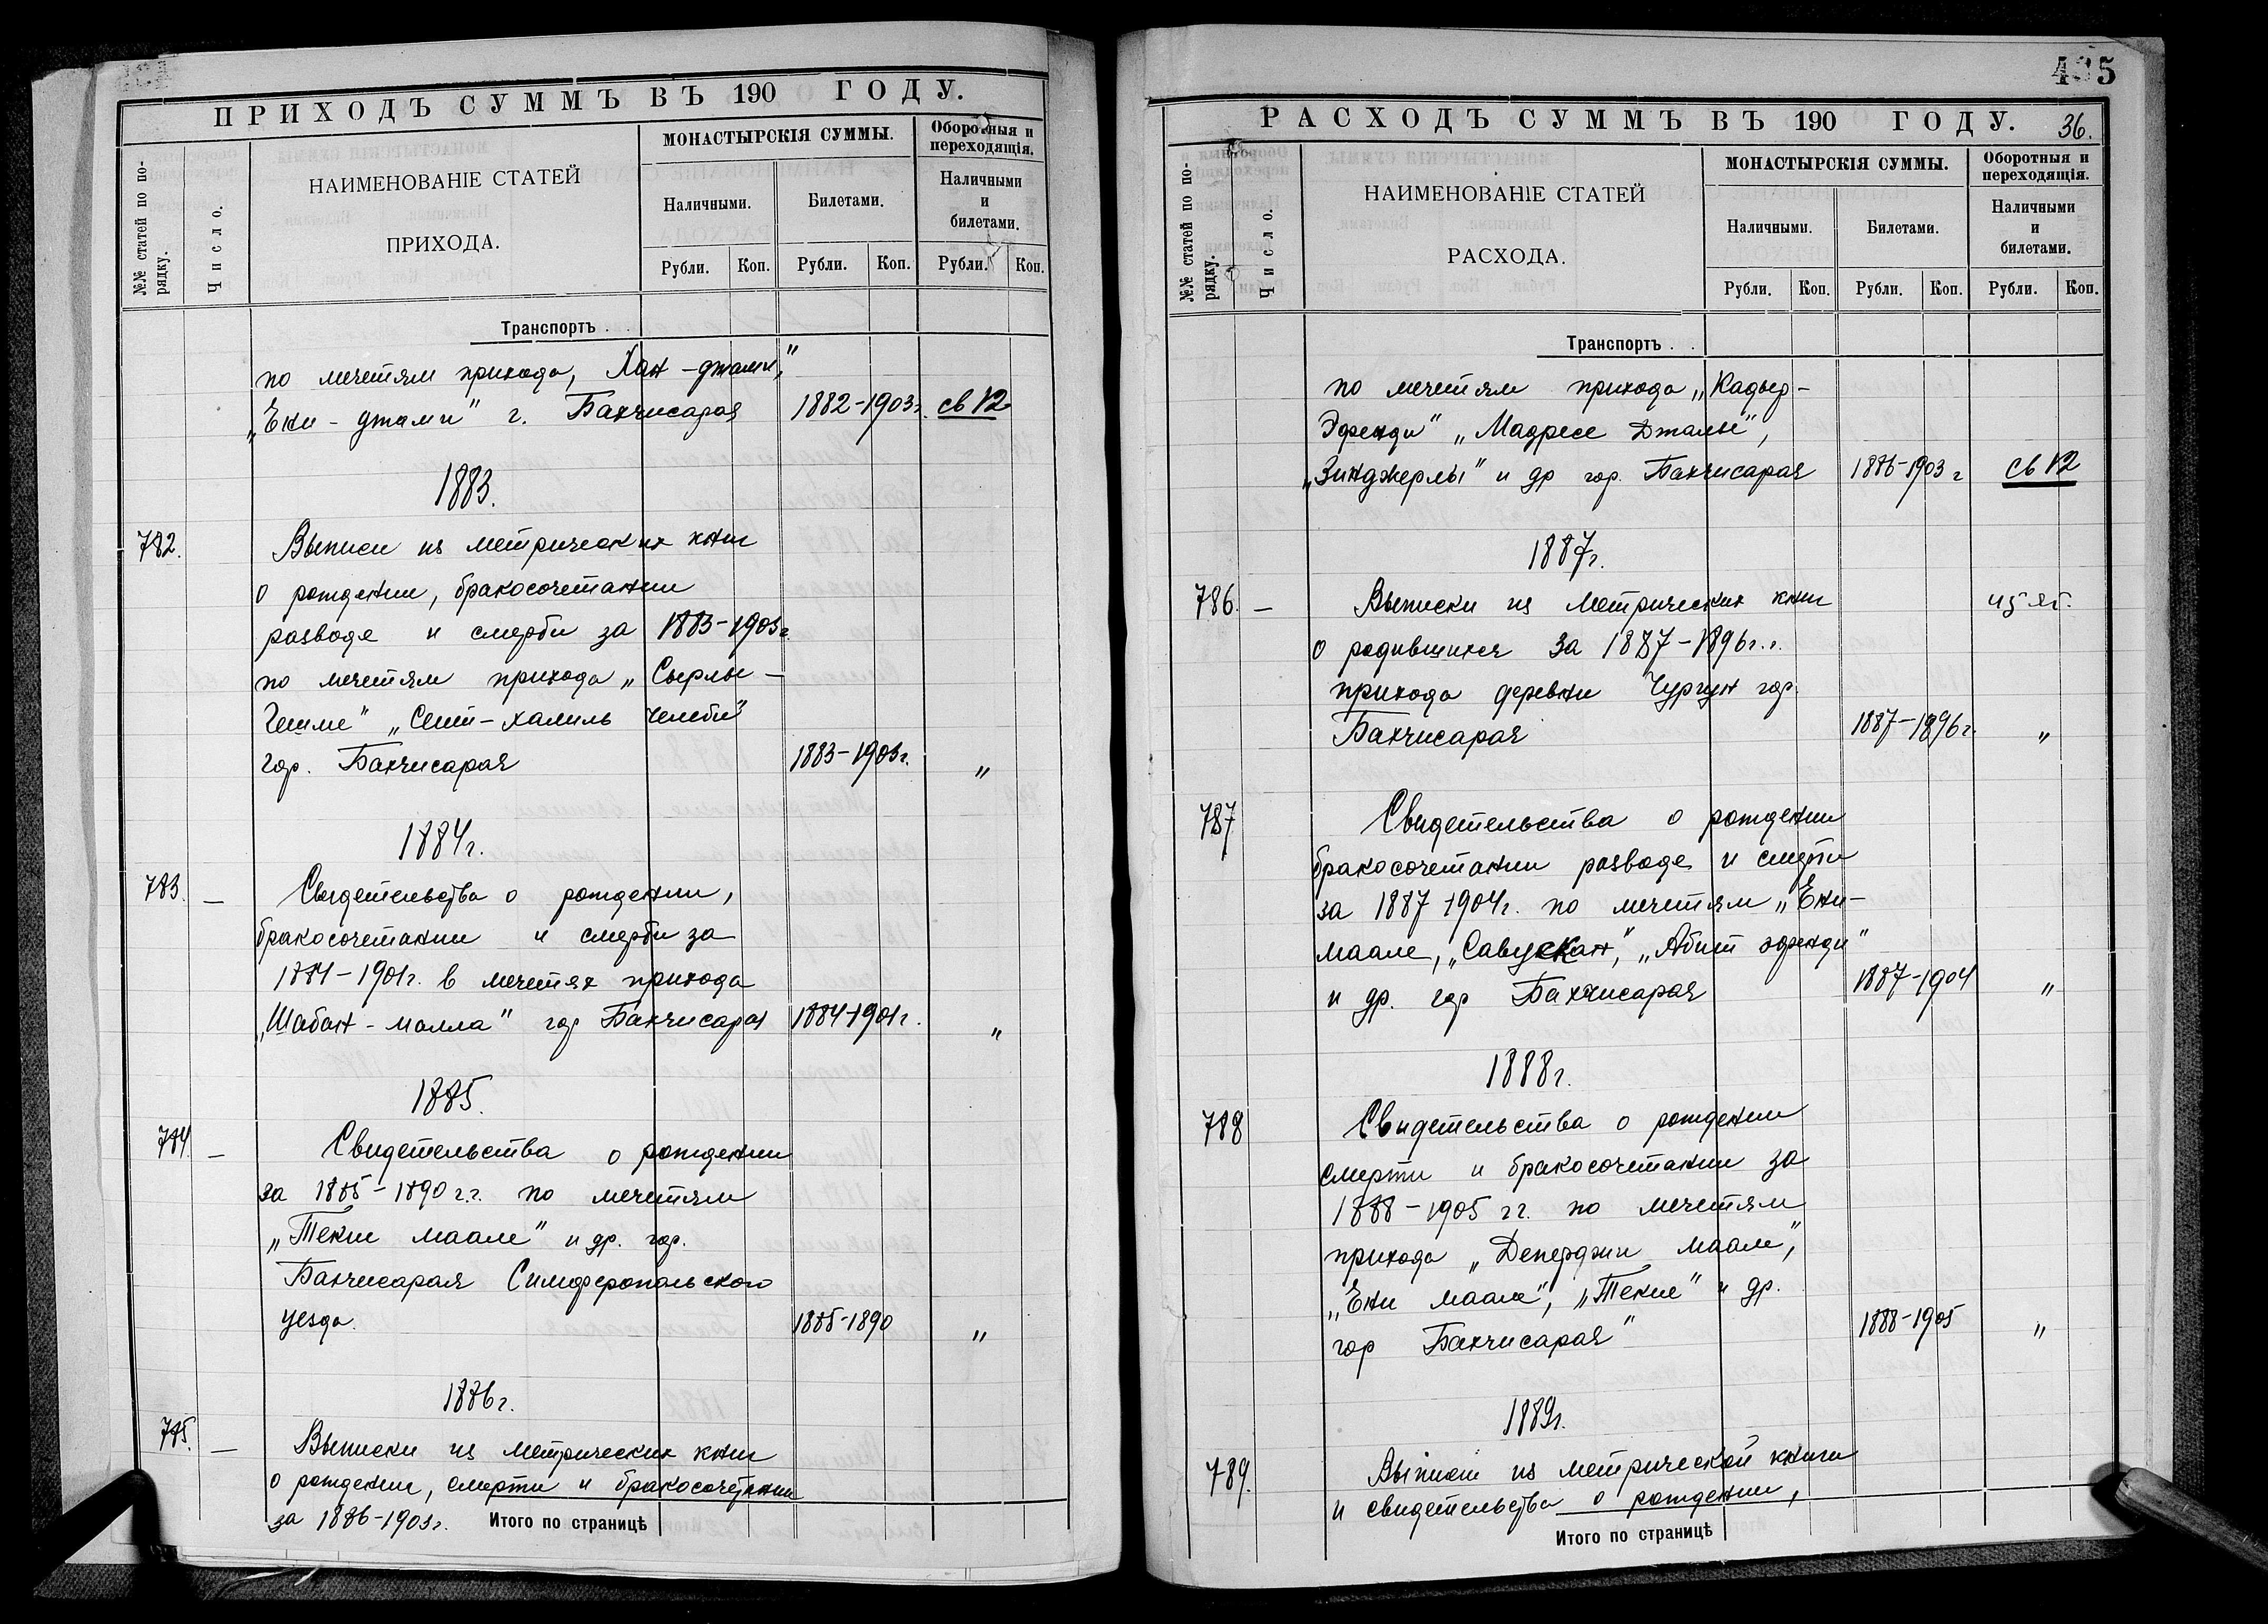 ПРИХОДЪ СУММЪ ВЪ 190 ГОДУ.
№№ статей по порядку.
Число.
НАИМЕНОВАНІЕ СТАТЕЙ
ПРИХОДА.
МОНАСТЫРСКІЯ СУММЫ.
Оборотныя и
переходящія.
Наличными.
Билетами.
Наличными
и
билетами.
Рубли. Коп. Рубли. Коп. Рубли. Коп.
Транспортъ . .
по мечетям прихода, Хан-джами,"
"Ени-джами" г. Бахчисарая 1882-1903г. св 12
1883.
782. Выписи из метрических книг
о рождении, бракосочетании
разводе и смерти за 1883-1903г.
по мечетям прихода „Сырлы-
Чешме" „Сеит-халиль Челеби"
гор. Бахчисарая 1883-1903г. "
1884г.
783. — Свидетельства о рождении,
бракосочетании и смерти за
1884-1901г. в мечетях прихода
„Шабан-малла" гор Бахчисарая 1884-1901г. "
1885.
784. — Свидетельства о рождении
за 1885-1890 г.г. по мечетям
„Текие маале" и др. гор.
Бахчисарая Симферопольского
уезда. 1885-1890 "
1886г.
785. — Выписки из метрических книг
о рождении, смерти и бракосочетании
за 1886-1903г. Итого по страницѣ
435
РАСХОДЪ СУММЪ ВЪ 190 ГОДУ. 36.
№№ статей по порядку.
Число.
НАИМЕНОВАНІЕ СТАТЕЙ
РАСХОДА.
МОНАСТЫРСКІЯ СУММЫ.
Оборотныя и
переходящія.
Наличными.
Билетами.
Наличными
и
билетами.
Рубли. Коп. Рубли. Коп. Рубли. Коп.
Транспортъ . .
по мечетям прихода „Кадыр-
Эфенди" „Мадресе Джалы",
„Зинджерлы" и др гор. Бахчисарая 1886-1903 г св 12
1887г.
786. — Выписки из метрических книг
о родившихся за 1887-1896г.г.
прихода деревни Чургун гор.
Бахчисарая 1887-1896г. "
787 Свидетельства о рождении
бракосочетании разводе и смерти
за 1887-1904г. по мечетям „Ени-
маале, „Савускан," „Абит эфенди"
и др. гор Бахчисарая 1887-1904 "
1888г.
788 Свидетельства о рождении
смерти и бракосочетании за
1888-1905 гг. по мечетям
прихода „Деперджи маале,"
„Ени маале", „Текие" и др.
гор Бахчисарая" 1888-1905 "
1889г.
789. Выписи из метрической книги
и свидетельства о рождении,
Итого по страницѣ